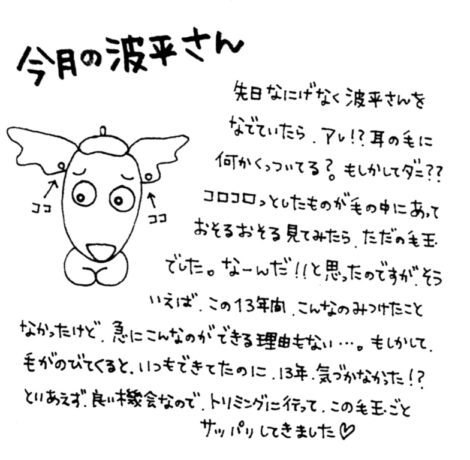 今月の波平さん
先日なにげなく波平さんを
なでていたら、アレ!?耳の毛に
何かくっついてる?。もしかしてダニ??
コロコロっとしたものが毛の中にあって
おそるおそる見てみたら、ただの毛玉
でした。なーんだ!!と思ったのですが、そう
いえば、この13年間、こんなのみつけたこと
なかったけど、急にこんなのができる理由もない…。もしかして、
毛がのびてくると、いつもできてたのに、13年、気づかなかった!?
とりあえず、良い機会なので、トリミングに行って、この毛玉ごと
サッパリしてきました♡
ココ
ココ